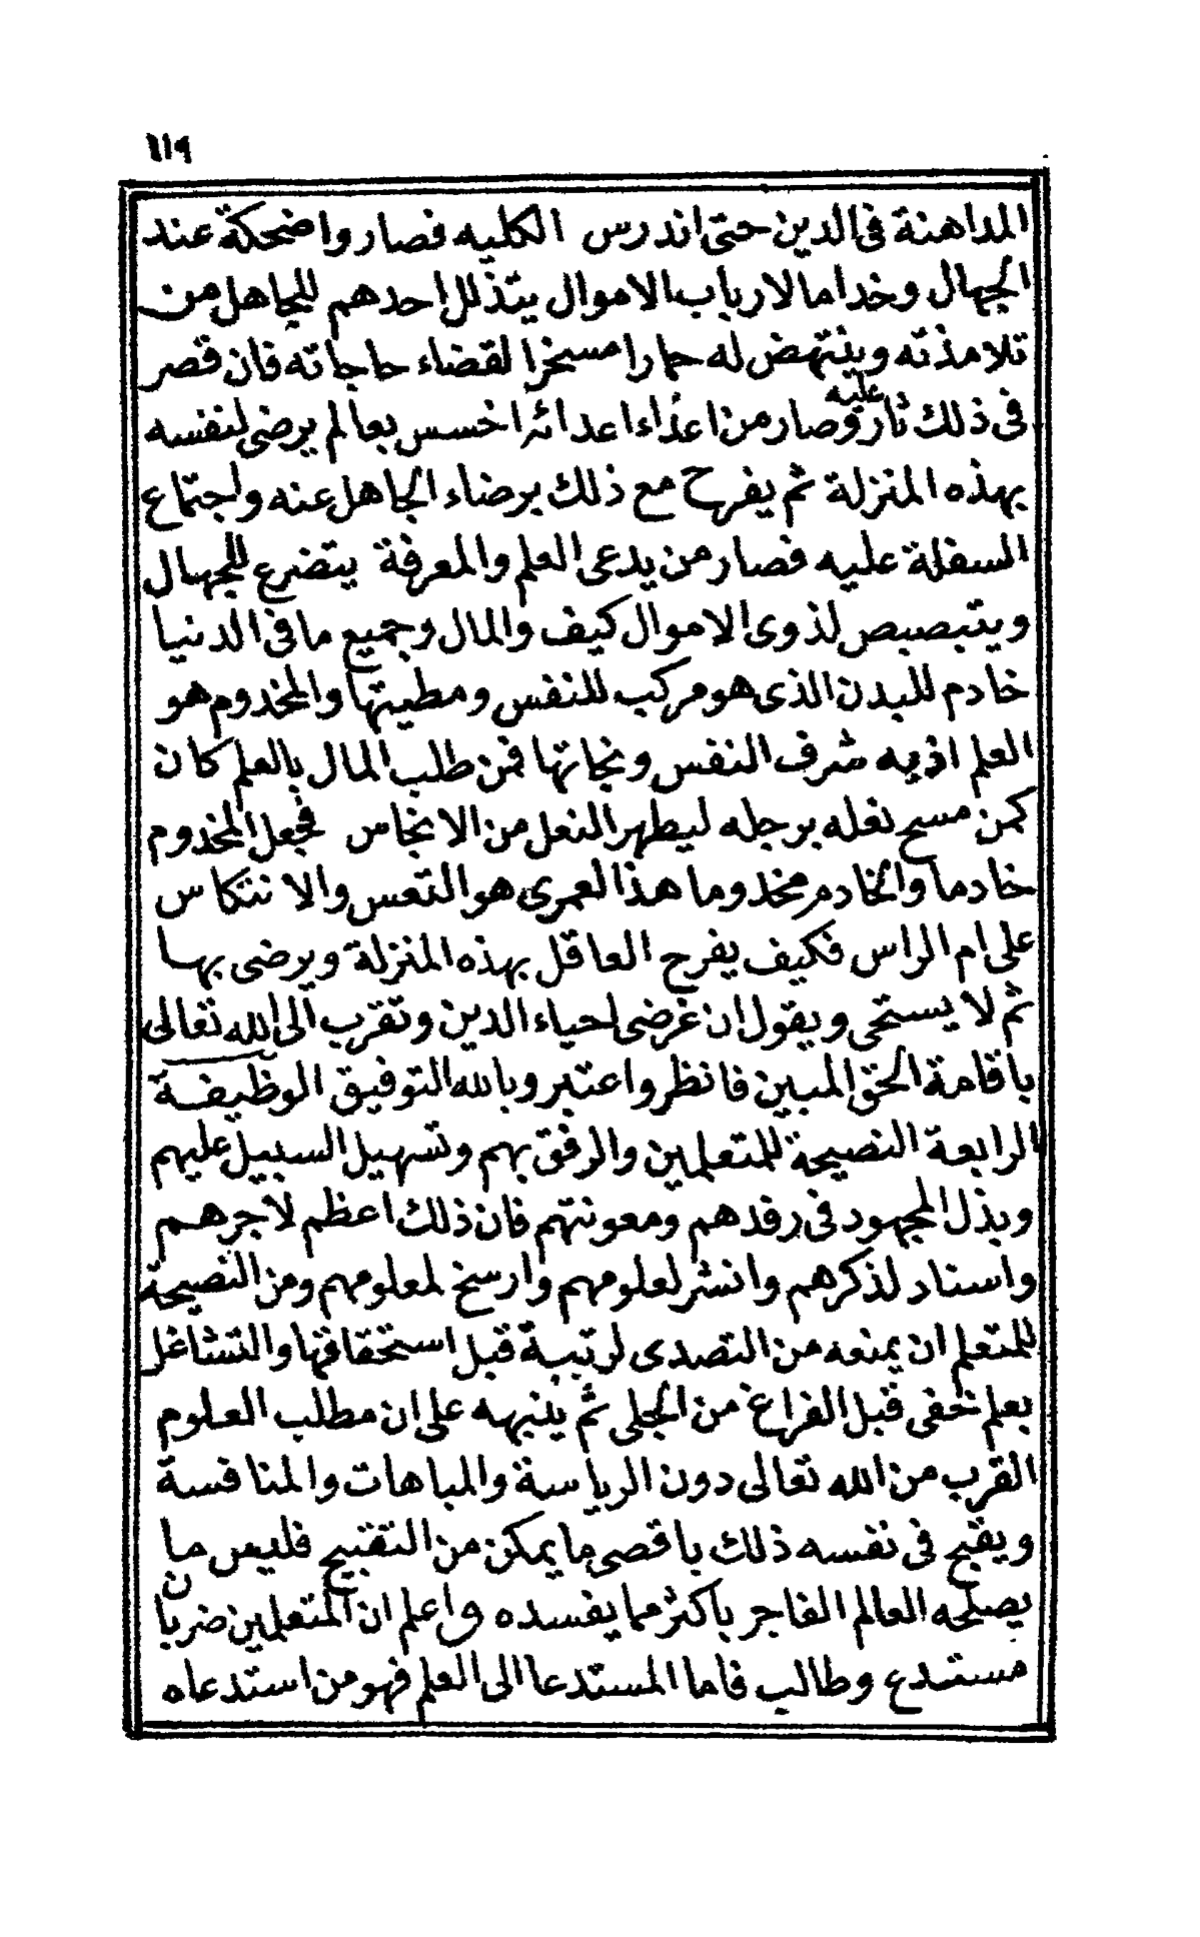 ١١٩
المداهنة فى الدين حتى اندرس الكليه فصار واضحكة عند
الجهال وخداما لارباب الاموال يتذلل احدهم للجاهل من
تلامذته وينتهض له حمارا مسخرا لقضاء حاجاته فان قصر
فى ذلك ثار عليه وصار من اعداء اعدائه اخسس بعالم يرضى لنفسه
بهذه المنزلة ثم يفرح مع ذلك برضاء الجاهل عنه واجتماع
السفلة عليه فصار من يدعى العلم والمعرفة يتضرع للجهال
ويتبصبص لذوى الاموال كيف والمال وجميع ما فى الدنيا
خادم للبدن الذى هو مركب للنفس ومطيتها والمخدوم هو
العلم اذ به شرف النفس ونجاتها فمن طلب المال بالعلم كان
كمن مسح نعله برجله ليطهر النعل من الانجاس فجعل المخدوم
خادما والخادم مخدوما هذا لعمرى هو التعس والانتكاس
على ام الراس فكيف يفرح العاقل بهذه المنزلة ويرضى بها
ثم لا يستحى ويقول ان غرضى احياء الدين وتقرب الى الله تعالى
باقامة الحق المبين فانظر واعتبر وبالله التوفيق الوظيفة
الرابعة النصيحة للمتعلمين والرفق بهم وتسهيل السبيل عليهم
وبذل المجهود فى رفدهم ومعونتهم فان ذلك اعظم لاجرهم
واسناد لذكرهم وانشر لعلومهم وارسخ لمعلومهم ومن النصيحة
للمتعلم ان يمنعه من التصدى لرتبة قبل استحقاقها والتشاغل
بعلم خفى قبل الفراغ من الجلى ثم ينبهه على ان مطلب العلوم
القرب من الله تعالى دون الرياسة والمباهات والمنافسة
ويقبح فى نفسه ذلك باقصى ما يمكن من التقبيح فليس ما
يصلحه العالم الفاجر باكثر مما يفسده واعلم ان المتعلمين ضربان
مستدع وطالب فاما المستدعا الى العلم فهو من استدعاه